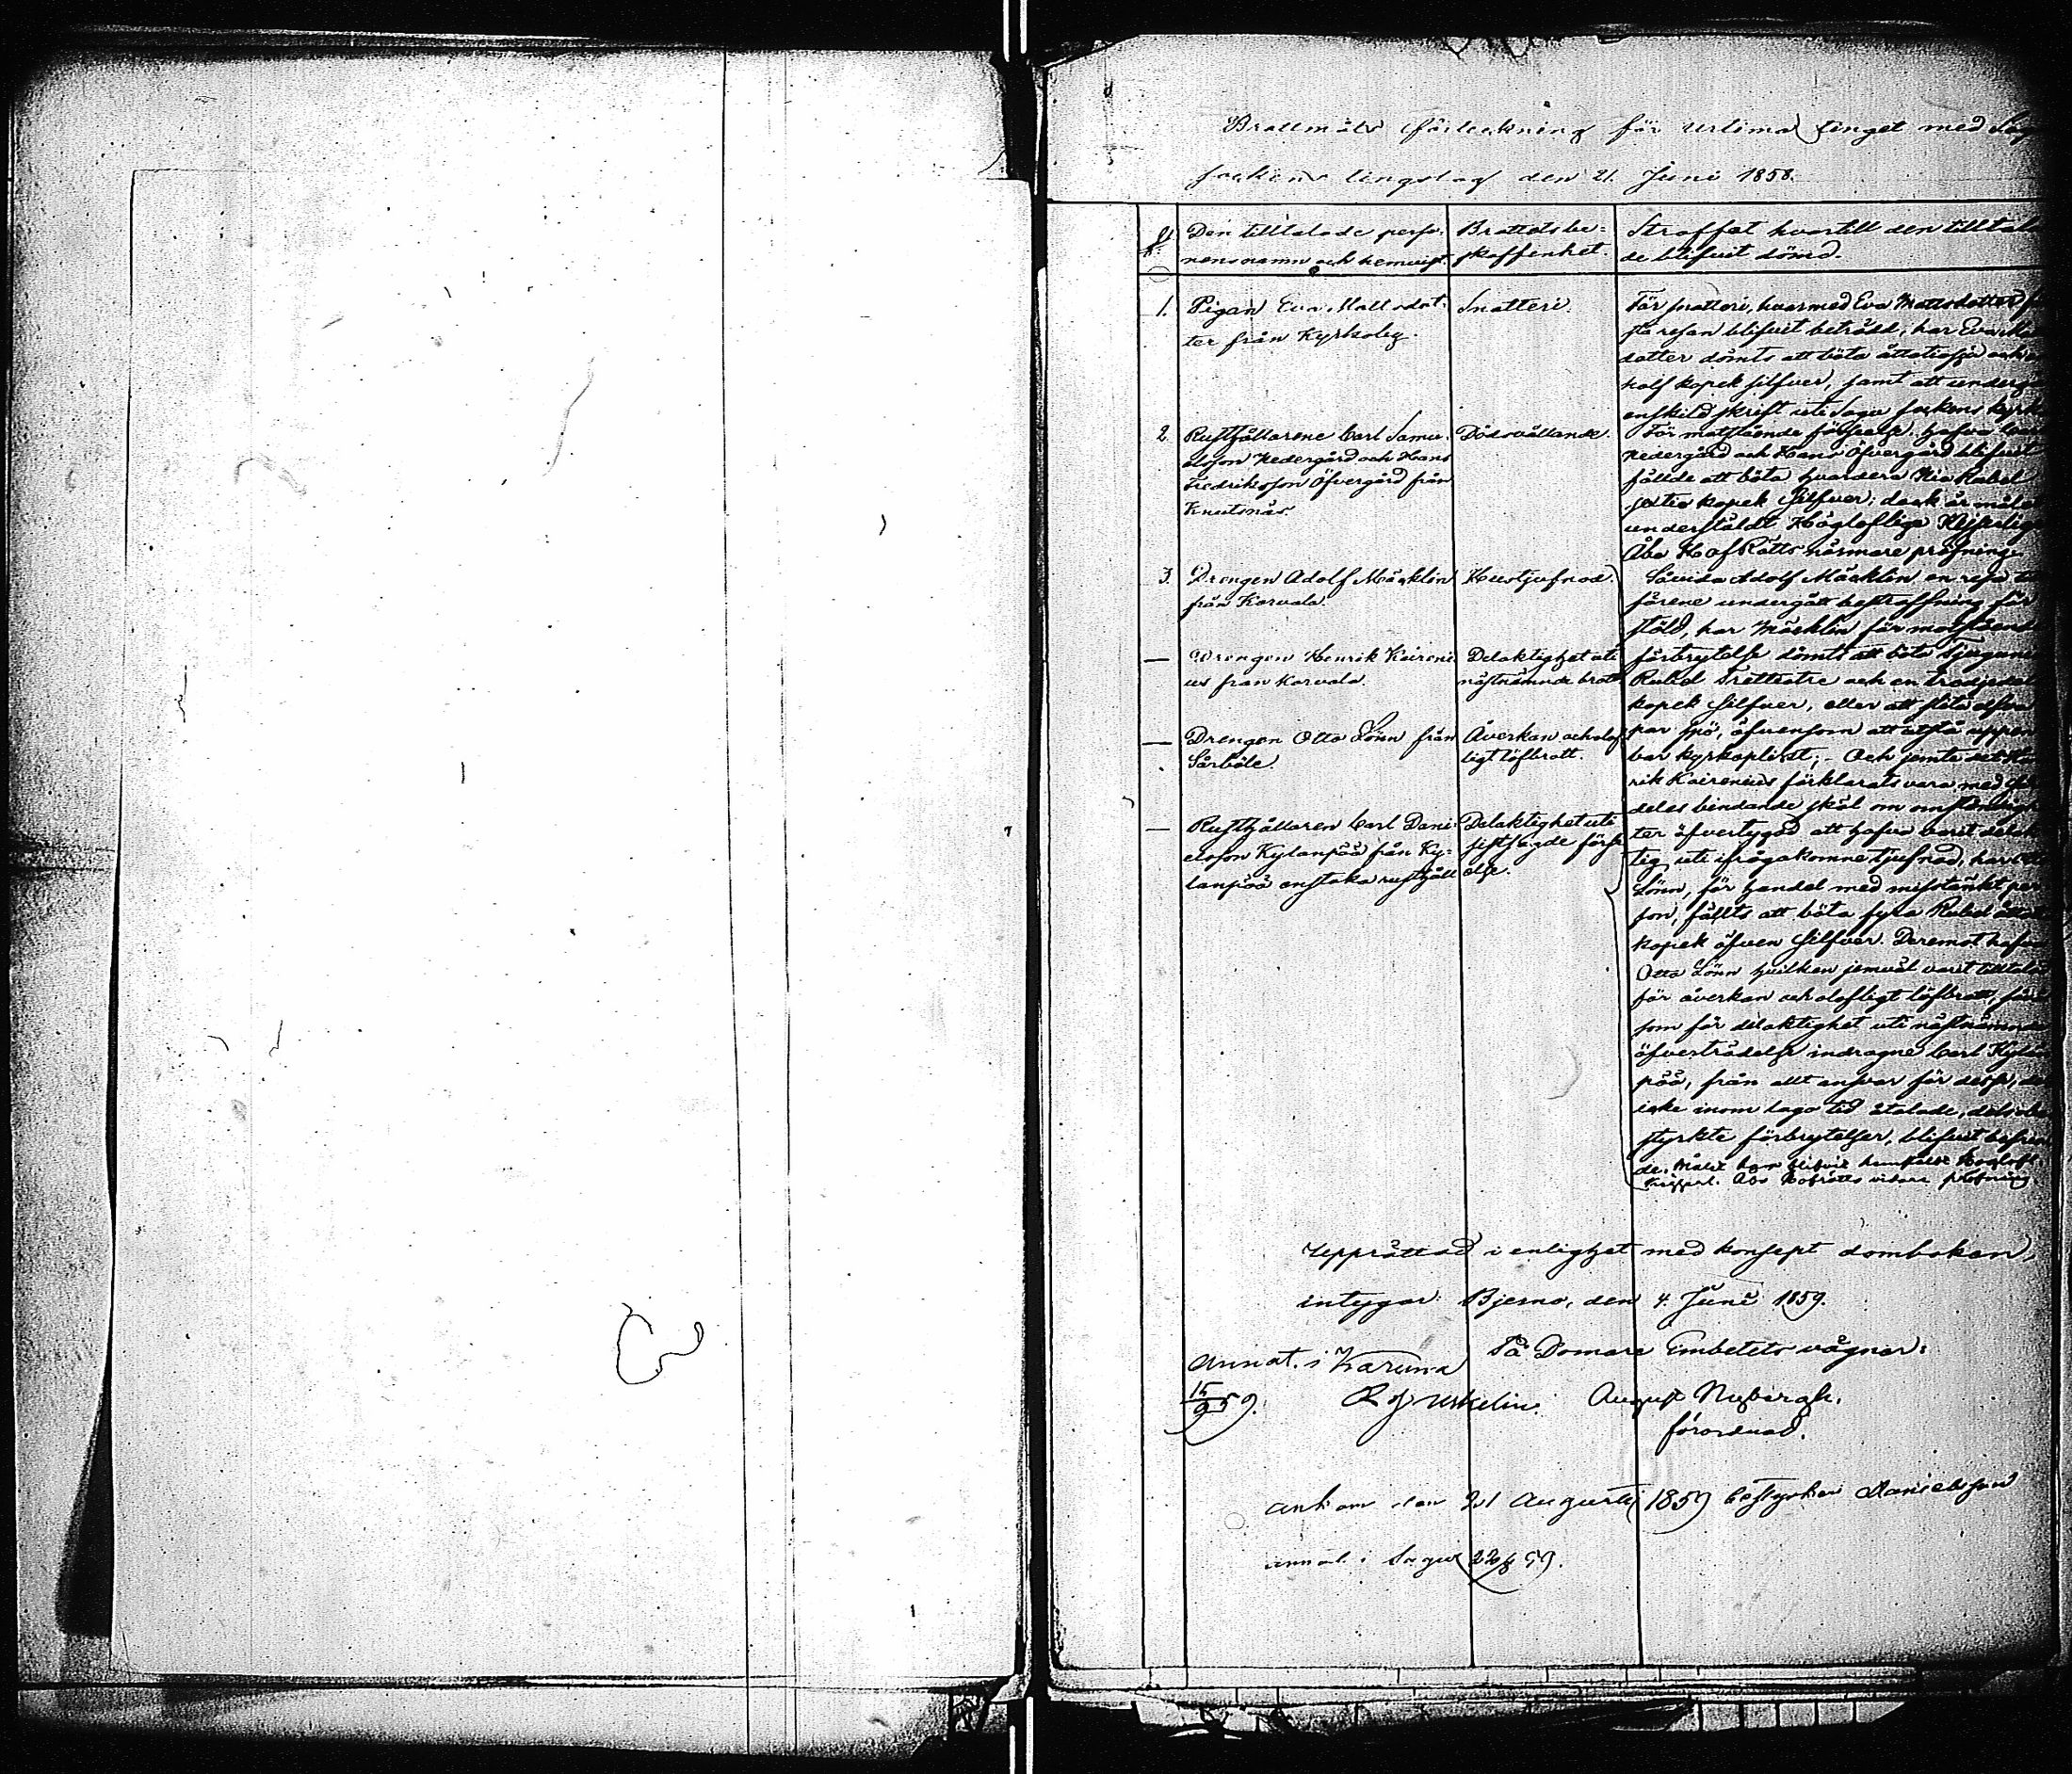 Brottmåls förteckning för urtima tinget med Sagu
sockens tingslag den 21. Juni 1858.
Den tilltalade perso-
nens namn och hemvist.
Brottets be-
skaffenhet.
Straffet hvartill den tilltala
de blifvit dömd.
1. Pigan Eva Mattsdot-
ter från Kyrkoby.
Snatteri.
För snatteri, hvarmed Eva Mattsdotter för
sta resan blifvit beträdd, har Eva Matts
dotter dömts att böta åttatiosju och en
half kopek silfver, samt att undergå
enskild skrift uti Sagu sockens kyrka
2. Rusthållarene Carl Samu-
elsson Nedergård och Hans
Fredriksson Öfvergård från
Knutsnäs.
Dödsvållande.
För motstående förseelse hafva Carl
Nedergård och Hans Öfvergård blifvit
fällde att böta hvardera Rubel
sextio kopek Silfver; dock är målet
underställdt Höglofliga Kejserliga
Åbo HofRätts närmare pröfning.
3. Drengen Adolf Mäcklin
från Karvala.
Hustjufnad.
Såvida Adolf Mäcklin en resa till
förene undergått bestraffning för
stöld, har Mäcklin för motstående
förbrytelse dömts att böta tjugunio
Rubel Trettiotre och en tredjedels
kopek Silfver, eller att slita
par spö, äfvensom att utstå uppen
bar kyrkoplikt; - Och jemte det Hen
rik Kairenius förklarats vara med
deles bindande skäl om omständighe
ter öfvertygad att hafva varit delak
tig uti ifrågakomne tjufnad, har Otto
Lönn, för handel med misstänkt per
son, fällts att böta fyra Rubel åttatio
kopek äfven Silfver. Deremot hafva
Otto Lönn hvilken jemväl varit tilltalad
för åverkan och olofligt löfbrott,
som för delaktighet uti nästnämnde
öfverträdelse indragne Carl Kylän
pää, från allt ansvar för desse, dels
icke inom laga tid åtalade, dels obe
styrkte förbrytelser, blifvit befriade
de. Målet har blifvit hemstäldt Höglofl.
Kejserl. Åbo Hofrätts vidare pröfning
— Drengen Henrik Kaireni-
us från Karvala.
Delaktighet uti
nästnämnde brott
— Drengen Otto Lönn från
Särböle.
Åverkan och olof-
ligt löfbrott.
— Rusthållaren Carl Dani-
elsson Kylänpää från Ky-
länpää enstaka rusthåll
Delaktighet uti
sistsagde förse-
else.
Upprättad i enlighet med konsept domboken,
intygar. Bjerno, den 4. Juni 1859.
På Domare Embetets vägnar:
August Nybergh.
förordnad.
Annot. i Karuna
15/9 59.
Uskelin.
Ankom den 21 Augusti 1859 bestyrker Danielsson
annot. i Sagu 22/8 59.